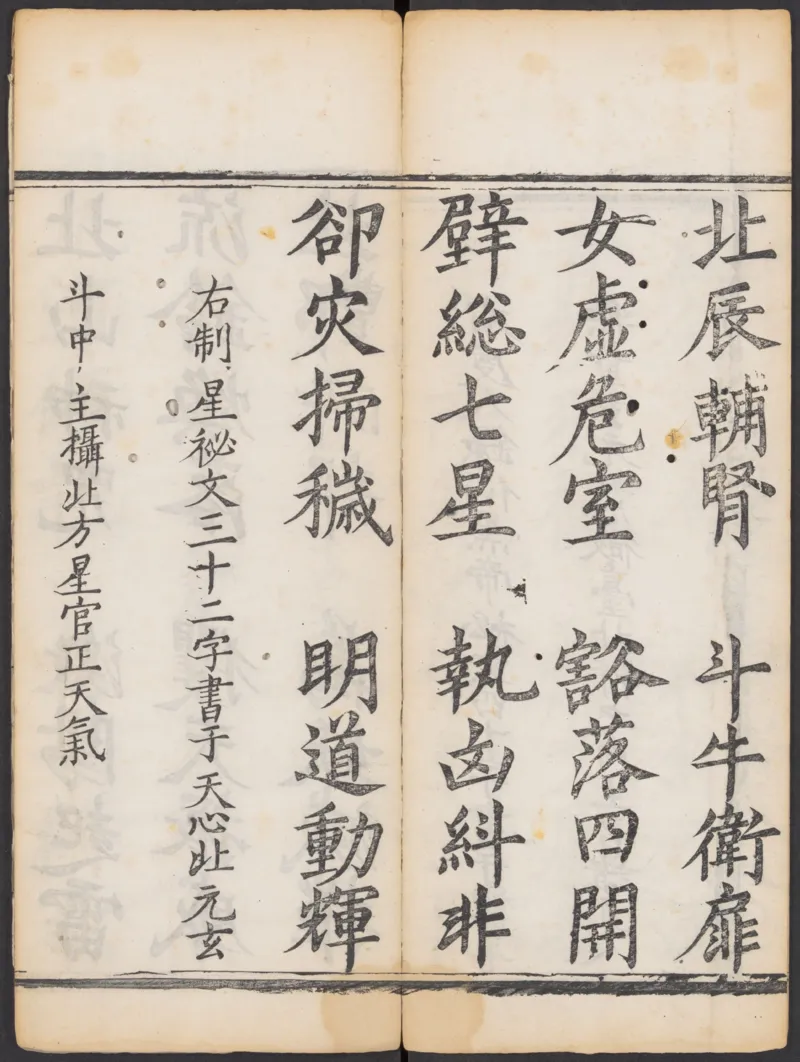 北辰輔腎 斗牛衛扉
女虛危室 豁落四開
壁総七星 執凶糾非
卻灾掃穢 明道動輝
右制星祕文三十二字書于天心北元玄
斗中主攝北方星官正天氣